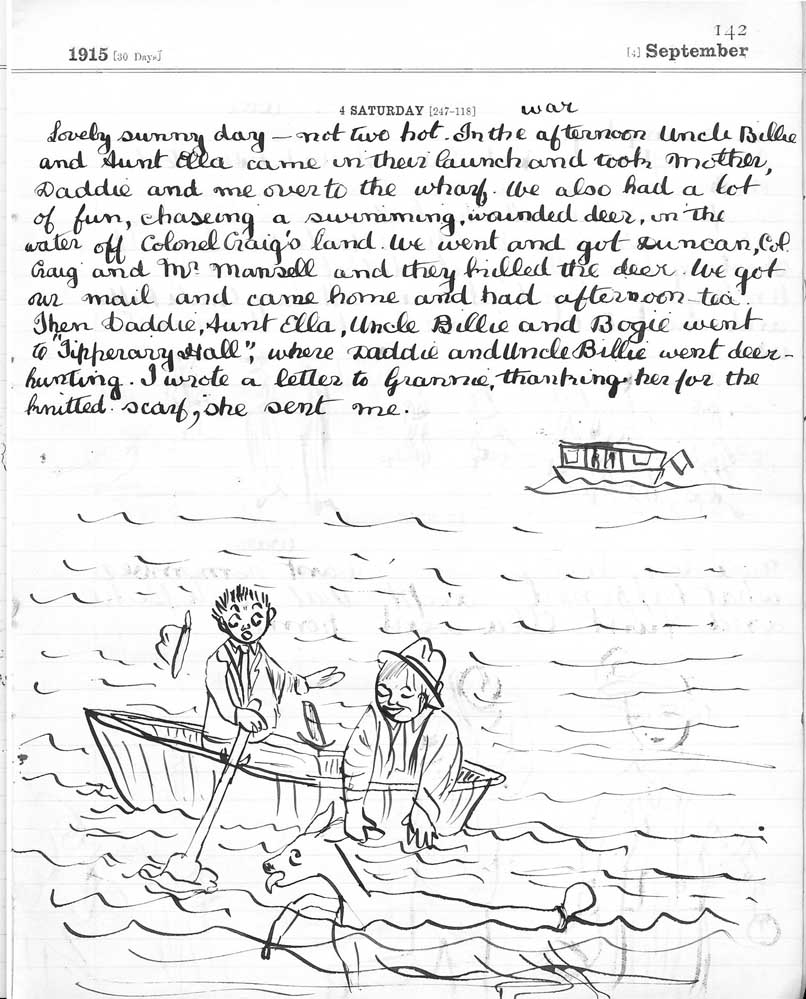 142
1915 [30 Days] [4] September
4 SATURDAY [247-118] war
Lovely sunny day – not two hot. In the afternoon Uncle Billie
and Aunt Ella came in their launch and took Mother,
Daddie and me over to the wharf. We also had a lot
of fun, chaseing a swimming, wounded deer, in the
water off Colonel Craig's land. We went and got Duncan, Col.
Craig and Mr. Mansell and they killed the deer. We got
our mail and came home and had afternoon tea.
Then Daddie, Aunt Ella, Uncle Billie and Bogie went
to "Tipperary Hall", where Daddie and Uncle Billie went deer-
hunting. I wrote a letter to Grannie, thanking her for the
knitted scarf, she sent me.